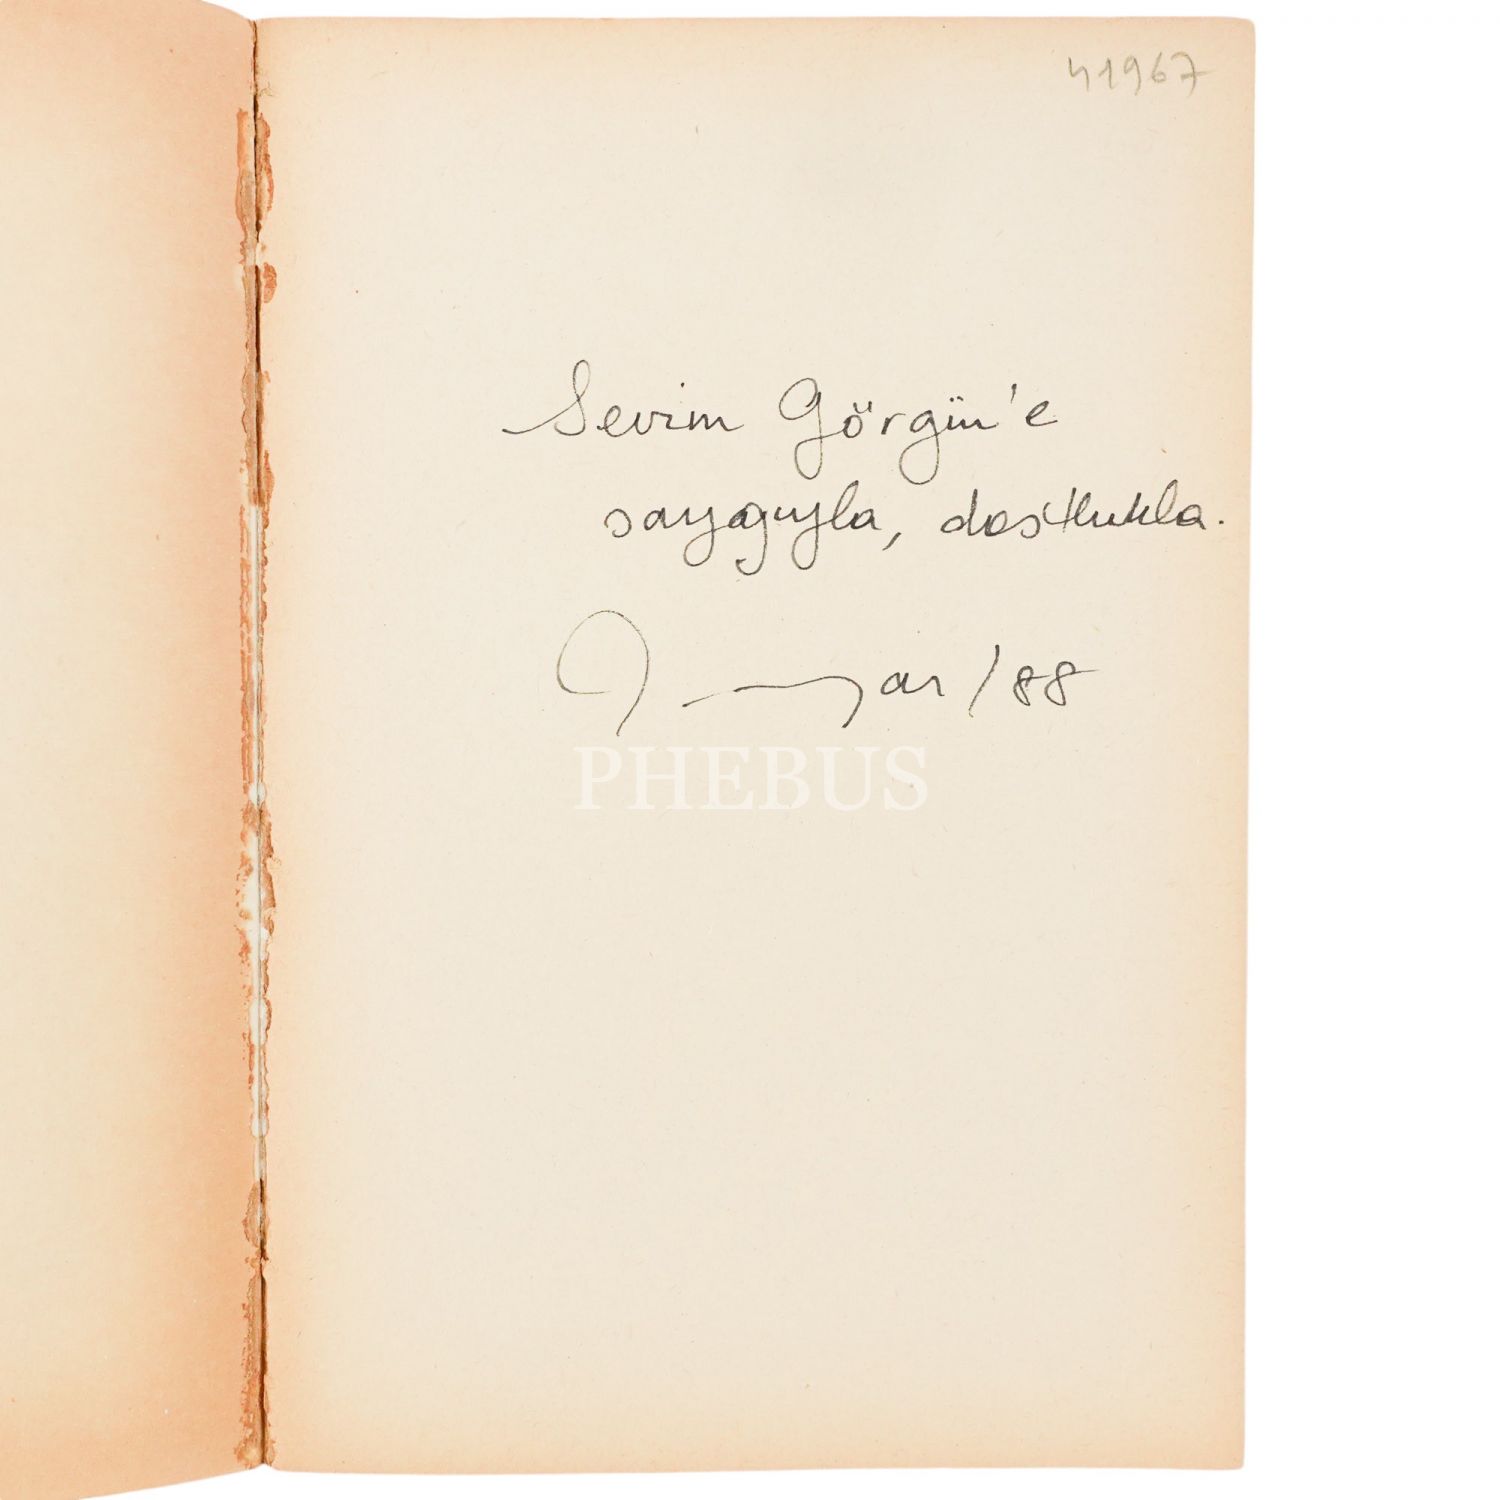 41967
Sevim Görgün'e
saygıyla, dostlukla.
/88
PHEBUS